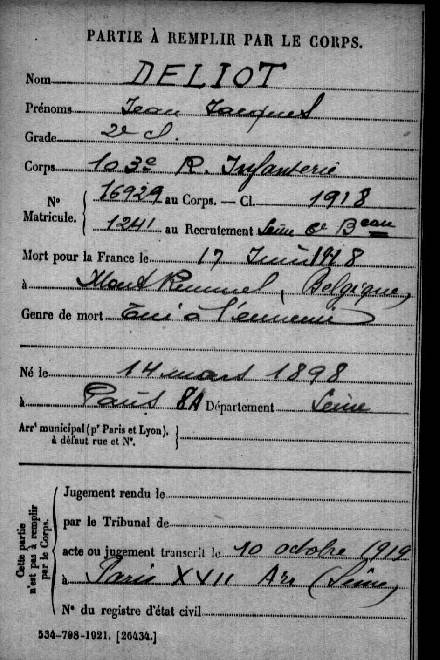 PARTIE À REMPLIR PAR LE CORPS.
Nom DELIOT
Prénoms Jean Jacques
Grade 2e cl.
Corps 103e R. Infanterie
N° Matricule. { 16929 au Corps. — Cl. 1918
1241 au Recrutement Seine 6e Beau
Mort pour la France le 17 Juin 1918
à Mont Kemmel, Belgique
Genre de mort Tué à l'ennemi
Né le 14 mars 1898
à Paris 8A Département Seine
Arrt municipal (pr Paris et Lyon),
à défaut rue et N°.
Cette partie n'est pas à remplir par le Corps.
Jugement rendu le
par le Tribunal de
acte ou jugement transcrit le 10 octobre 1919
à Paris XVII Arr (Seine)
N° du registre d'état civil
534-798-1921. [26434.]